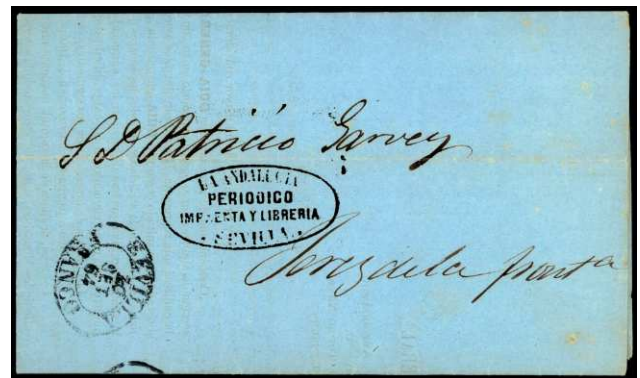 S D Patricio Garvey
LA ANDALUCIA
PERIODICO
IMPRENTA Y LIBRERIA
SEVILLA
Jerez de la front.a
SEVILLA
FRANCO